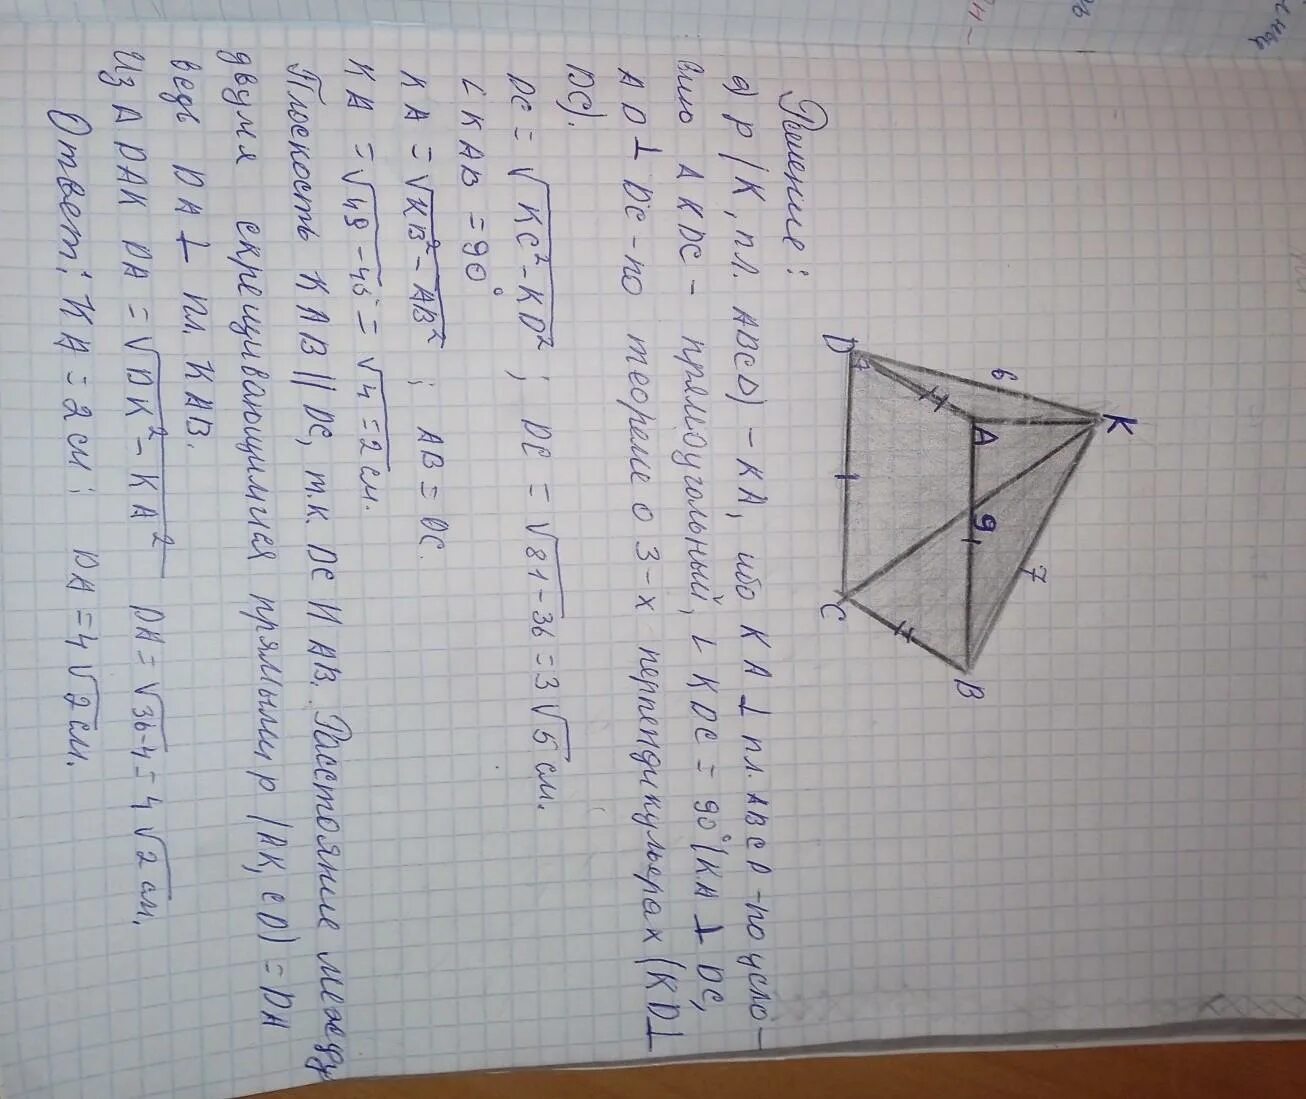 K
6
7
D
A
9
C
B
Решение:
а) p (K, пл. ABCD) - KA, ибо KA ⊥ пл. ABCD - по усло-
вию Δ KDC - прямоугольный, ∠ KDC = 90° (KA ⊥ DC,
AD ⊥ DC - по теореме о 3-х перпендикулярах (KD ⊥
DC).
DC = √KC² - KD² ; DC = √81 - 36 = 3√5 см.
∠ KAB = 90°
KA = √KB² - AB² ; AB = DC.
KA = √49 - 45 = √4 = 2 см.
Плоскость KAB || DC, т.к. DC || AB. Расстояние между
двумя скрещивающимися прямыми p (AK, CD) = DA
ведь DA ⊥ пл. KAB.
Из Δ DAK DA = √DK² - KA² DA = √36-4 = 4√2 см.
Ответ: KA = 2 см; DA = 4√2 см.